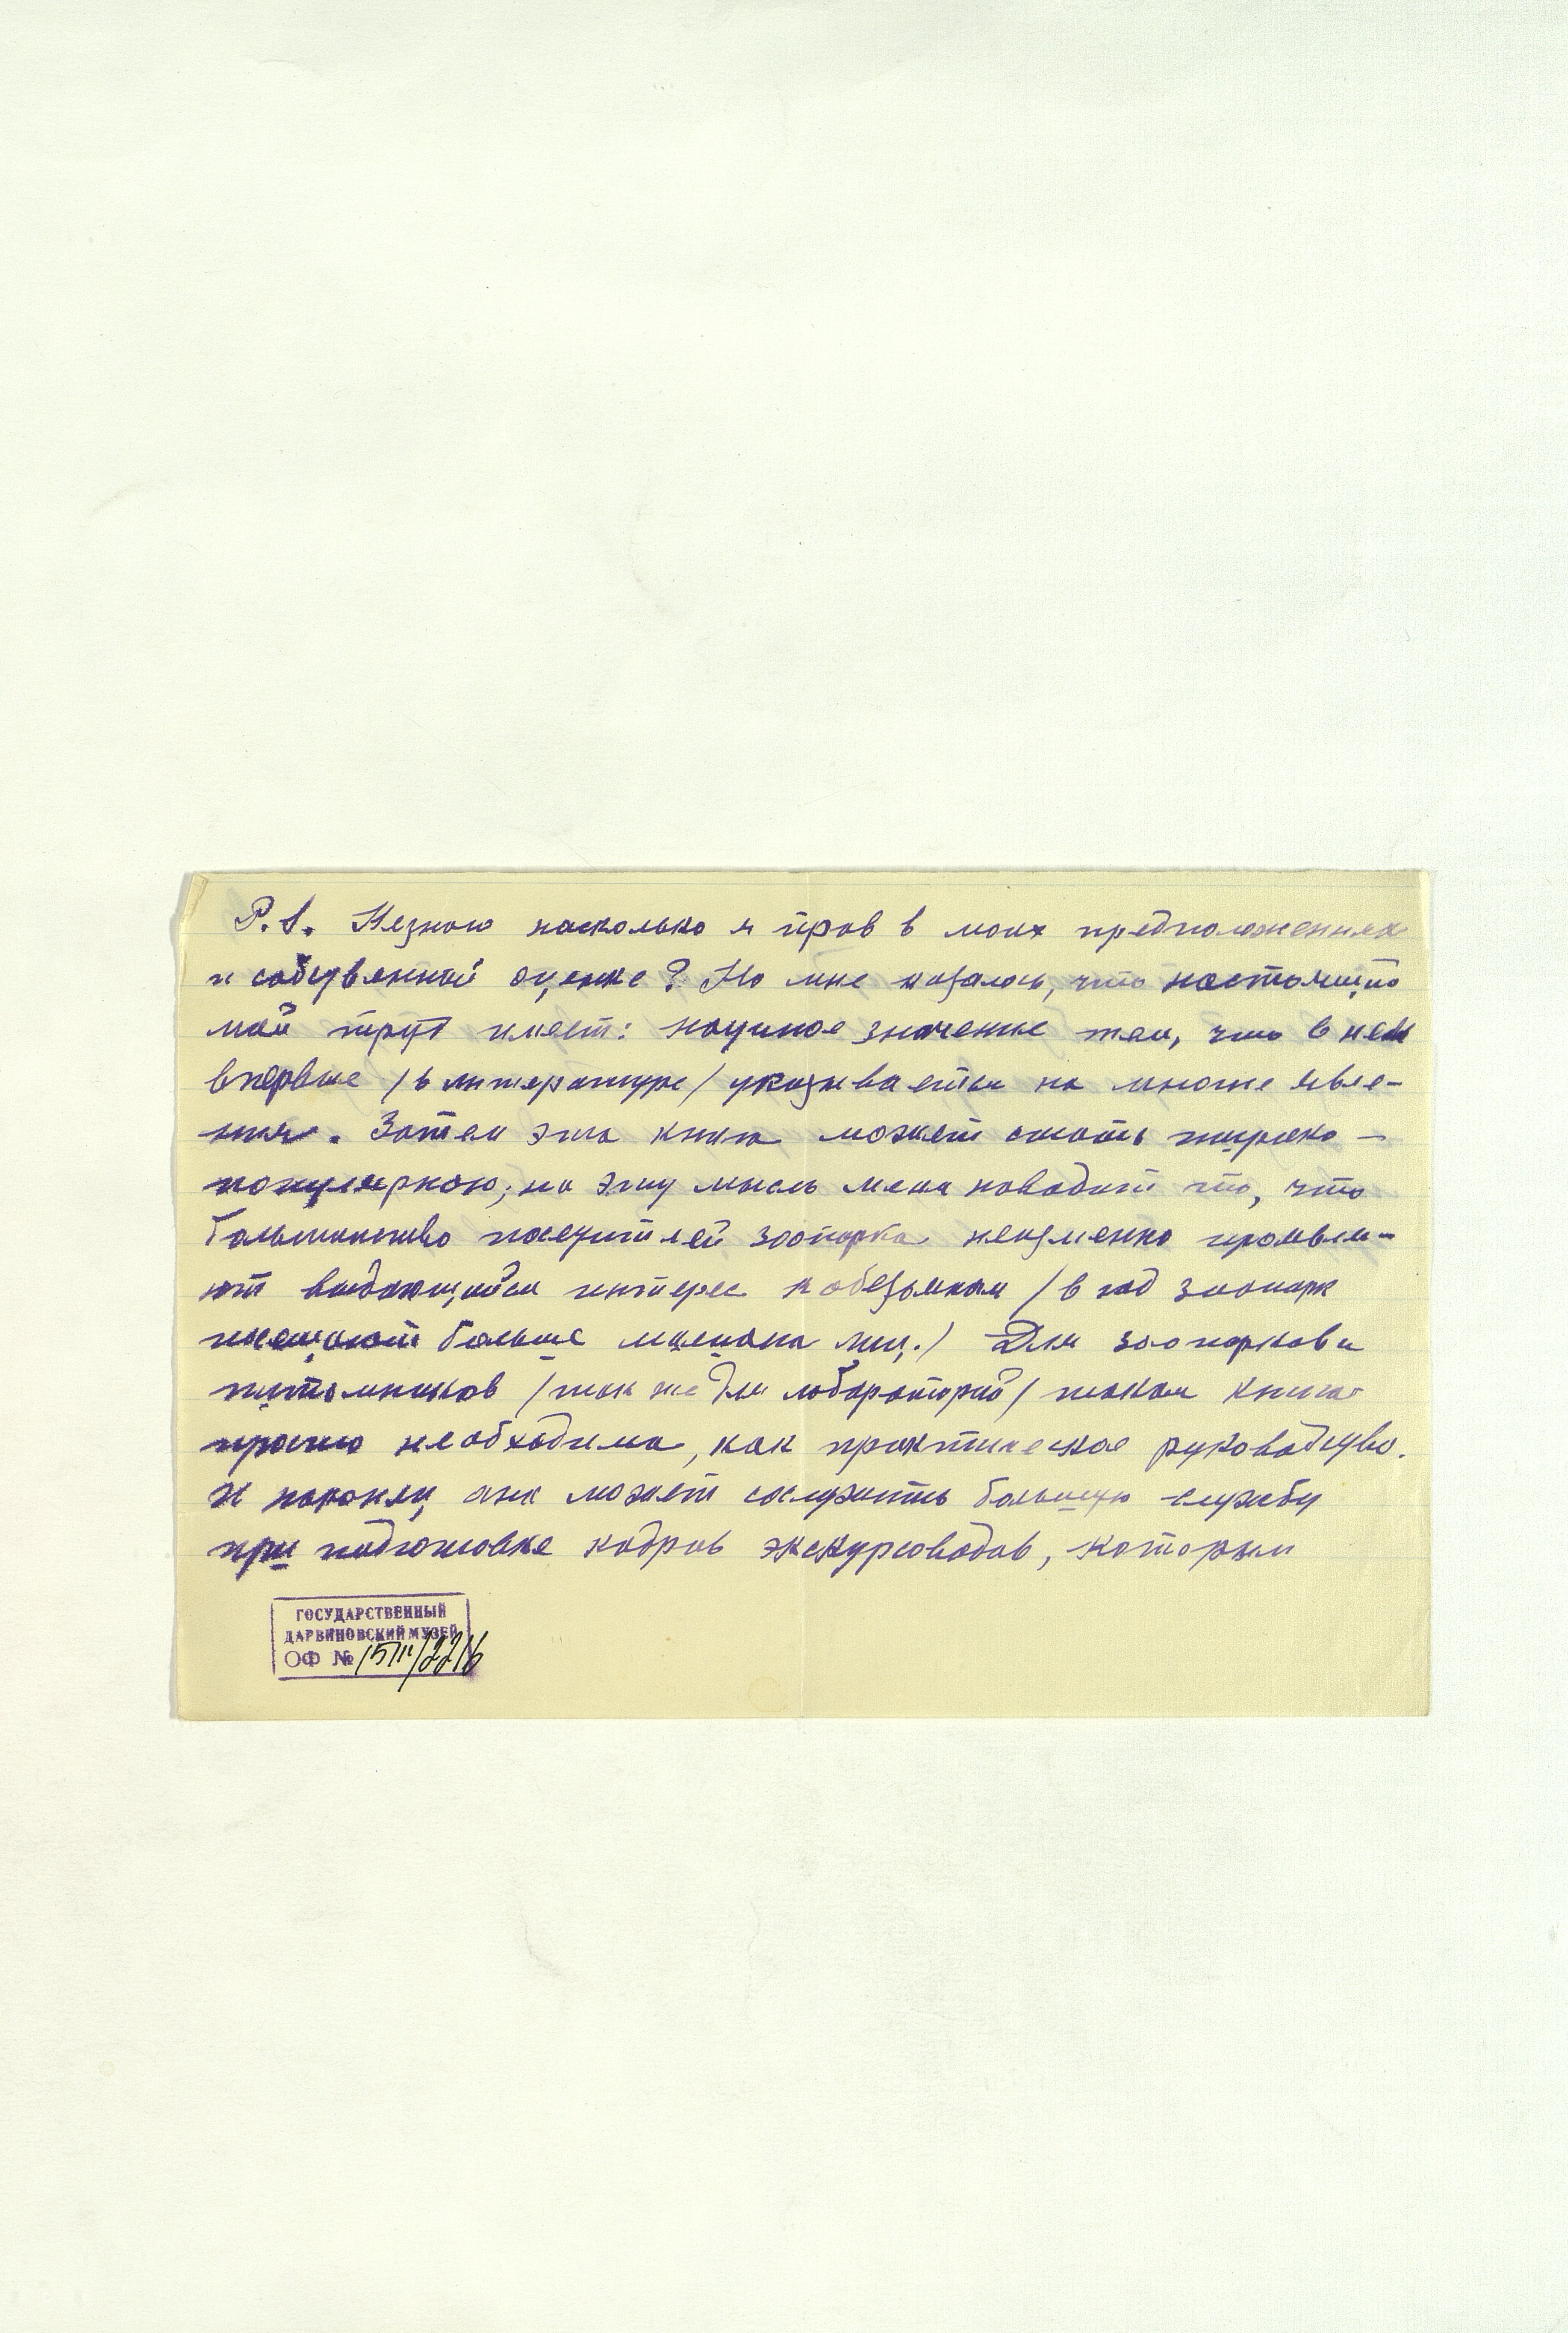 P.S. Незнаю насколько я прав в моих предположениях
и собственной оценке? Но мне казалось, что настоящий
мой труд имеет: научное значение тем, что в нем
впервые /в литературе/ указывается на многие явле-
ния. Затем эта книга может стать широко –
популярною; на эту мысль меня наводит то, что
большинство посетителей зоопарка неизменно проявля-
ют выдающийся интерес к обезьянам /в год зоопарк
посещают больше миллиона лиц./ Для зоопарков и
питомников /так же для лабораторий/ такая книга
просто необходима, как практическое руководство.
И наконец она может сослужить большую службу
при подготовке кадров экскурсоводов, которым
ГОСУДАРСТВЕННЫЙ
ДАРВИНОВСКИЙ МУЗЕЙ
ОФ №